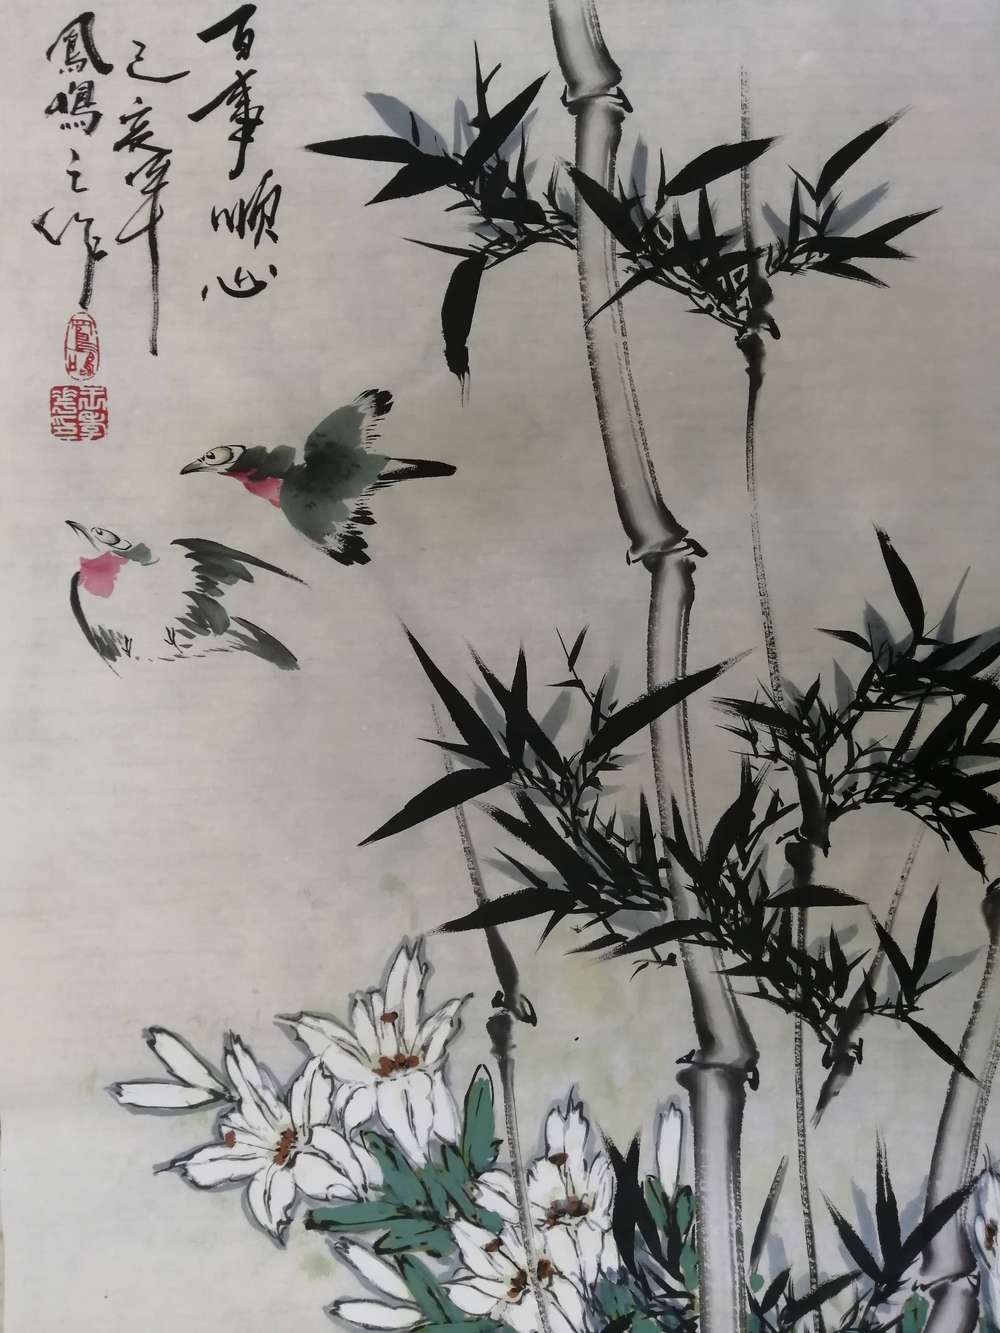 百事順心
己亥年
鳳鳴之作
鳳鳴